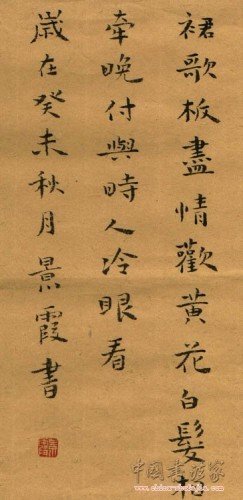 裙歌板盡情歡黃花白髮相
牽晚付與時人冷眼看
歲在癸未秋月景霞書
中國書法家